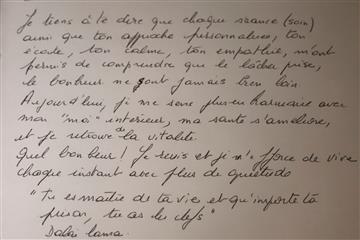 Je tiens à te dire que chaque séance (soin)
ainsi que ton approche personnalisée, ton
écoute, ton calme, ton empathie, m'ont
permis de comprendre que le lâcher prise,
le bonheur ne sont jamais bien loin.
Aujourd'hui, je me sens plus en harmonie avec
mon "moi" intérieur, ma santé s'améliore,
et je retrouve de la vitalité.
Quel bonheur ! Je revis et je m'efforce de vivre
chaque instant avec plus de quiétude
"Tu es maître de ta vie et qu'importe ta
prison, tu as les clefs"
Dalaï Lama.